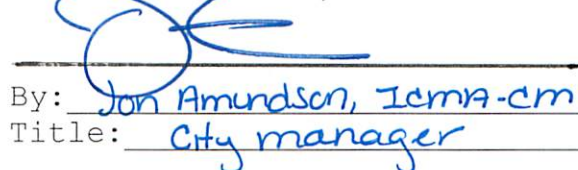 By: Jon Amundson, ICMA-CM
Title: City manager